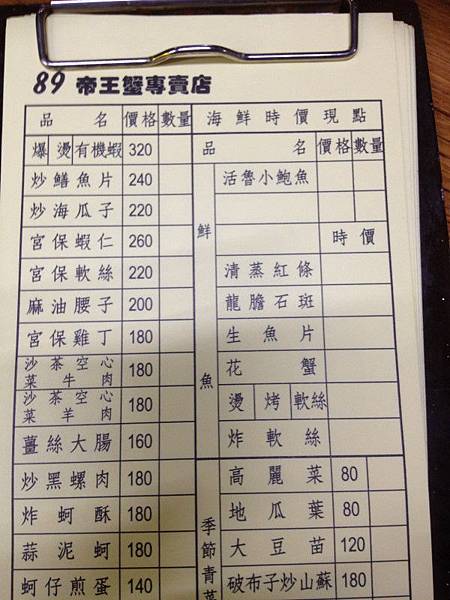 89 帝王蟹專賣店
品名 價格 數量 海鮮時價現點
爆 燙 有機蝦 320 品名 價格 數量
炒鱔魚片 240 活魯小鮑魚
炒海瓜子 220
鮮魚
宮保蝦仁 260 時價
宮保軟絲 220 清蒸紅條
麻油腰子 200 龍膽石斑
宮保雞丁 180 生魚片
沙茶空心菜牛肉 180 花蟹
沙茶空心菜羊肉 180 燙 烤 軟絲
薑絲大腸 160 炸軟絲
季節青菜
炒黑螺肉 180 高麗菜 80
炸蚵酥 180 地瓜葉 80
蒜泥蚵 180 大豆苗 120
蚵仔煎蛋 140 破布子炒山蘇 180